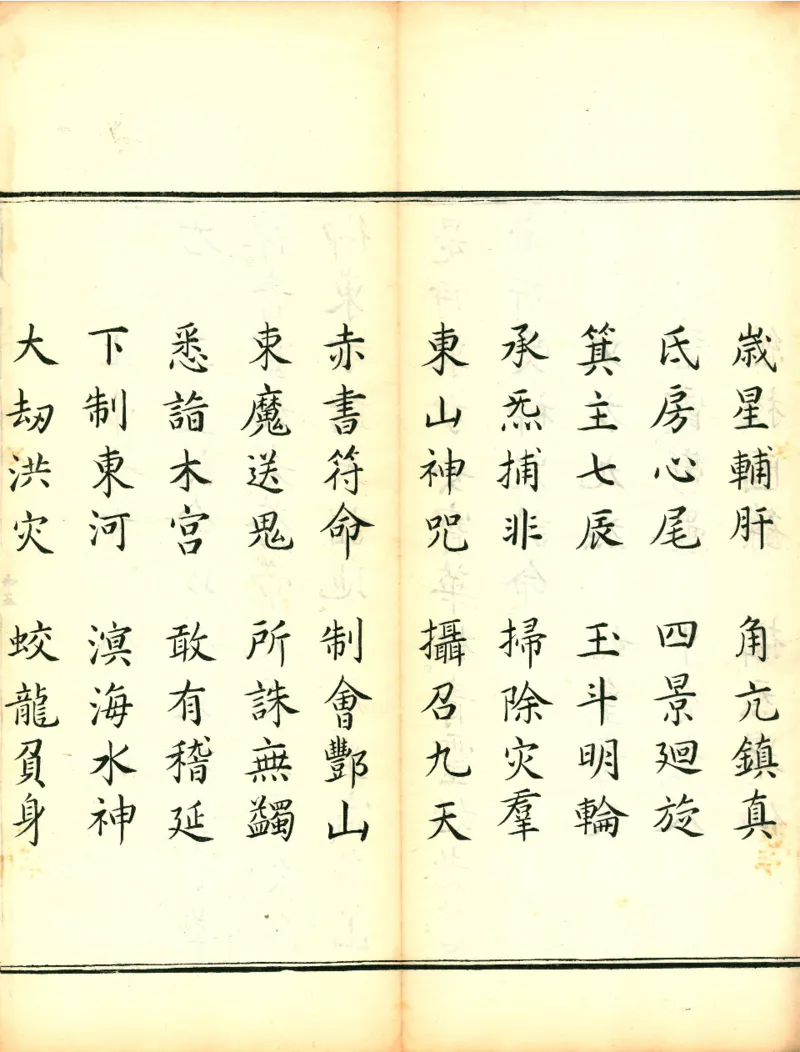 歳星輔肝 角亢鎮真
氐房心尾 四景廻旋
箕主七辰 玉斗明輪
承炁捕非 掃除灾羣
東山神咒 攝召九天
赤書符命 制會酆山
束魔送鬼 所誅無蠲
悉詣木宮 敢有稽延
下制東河 溟海水神
大劫洪灾 蛟龍負身